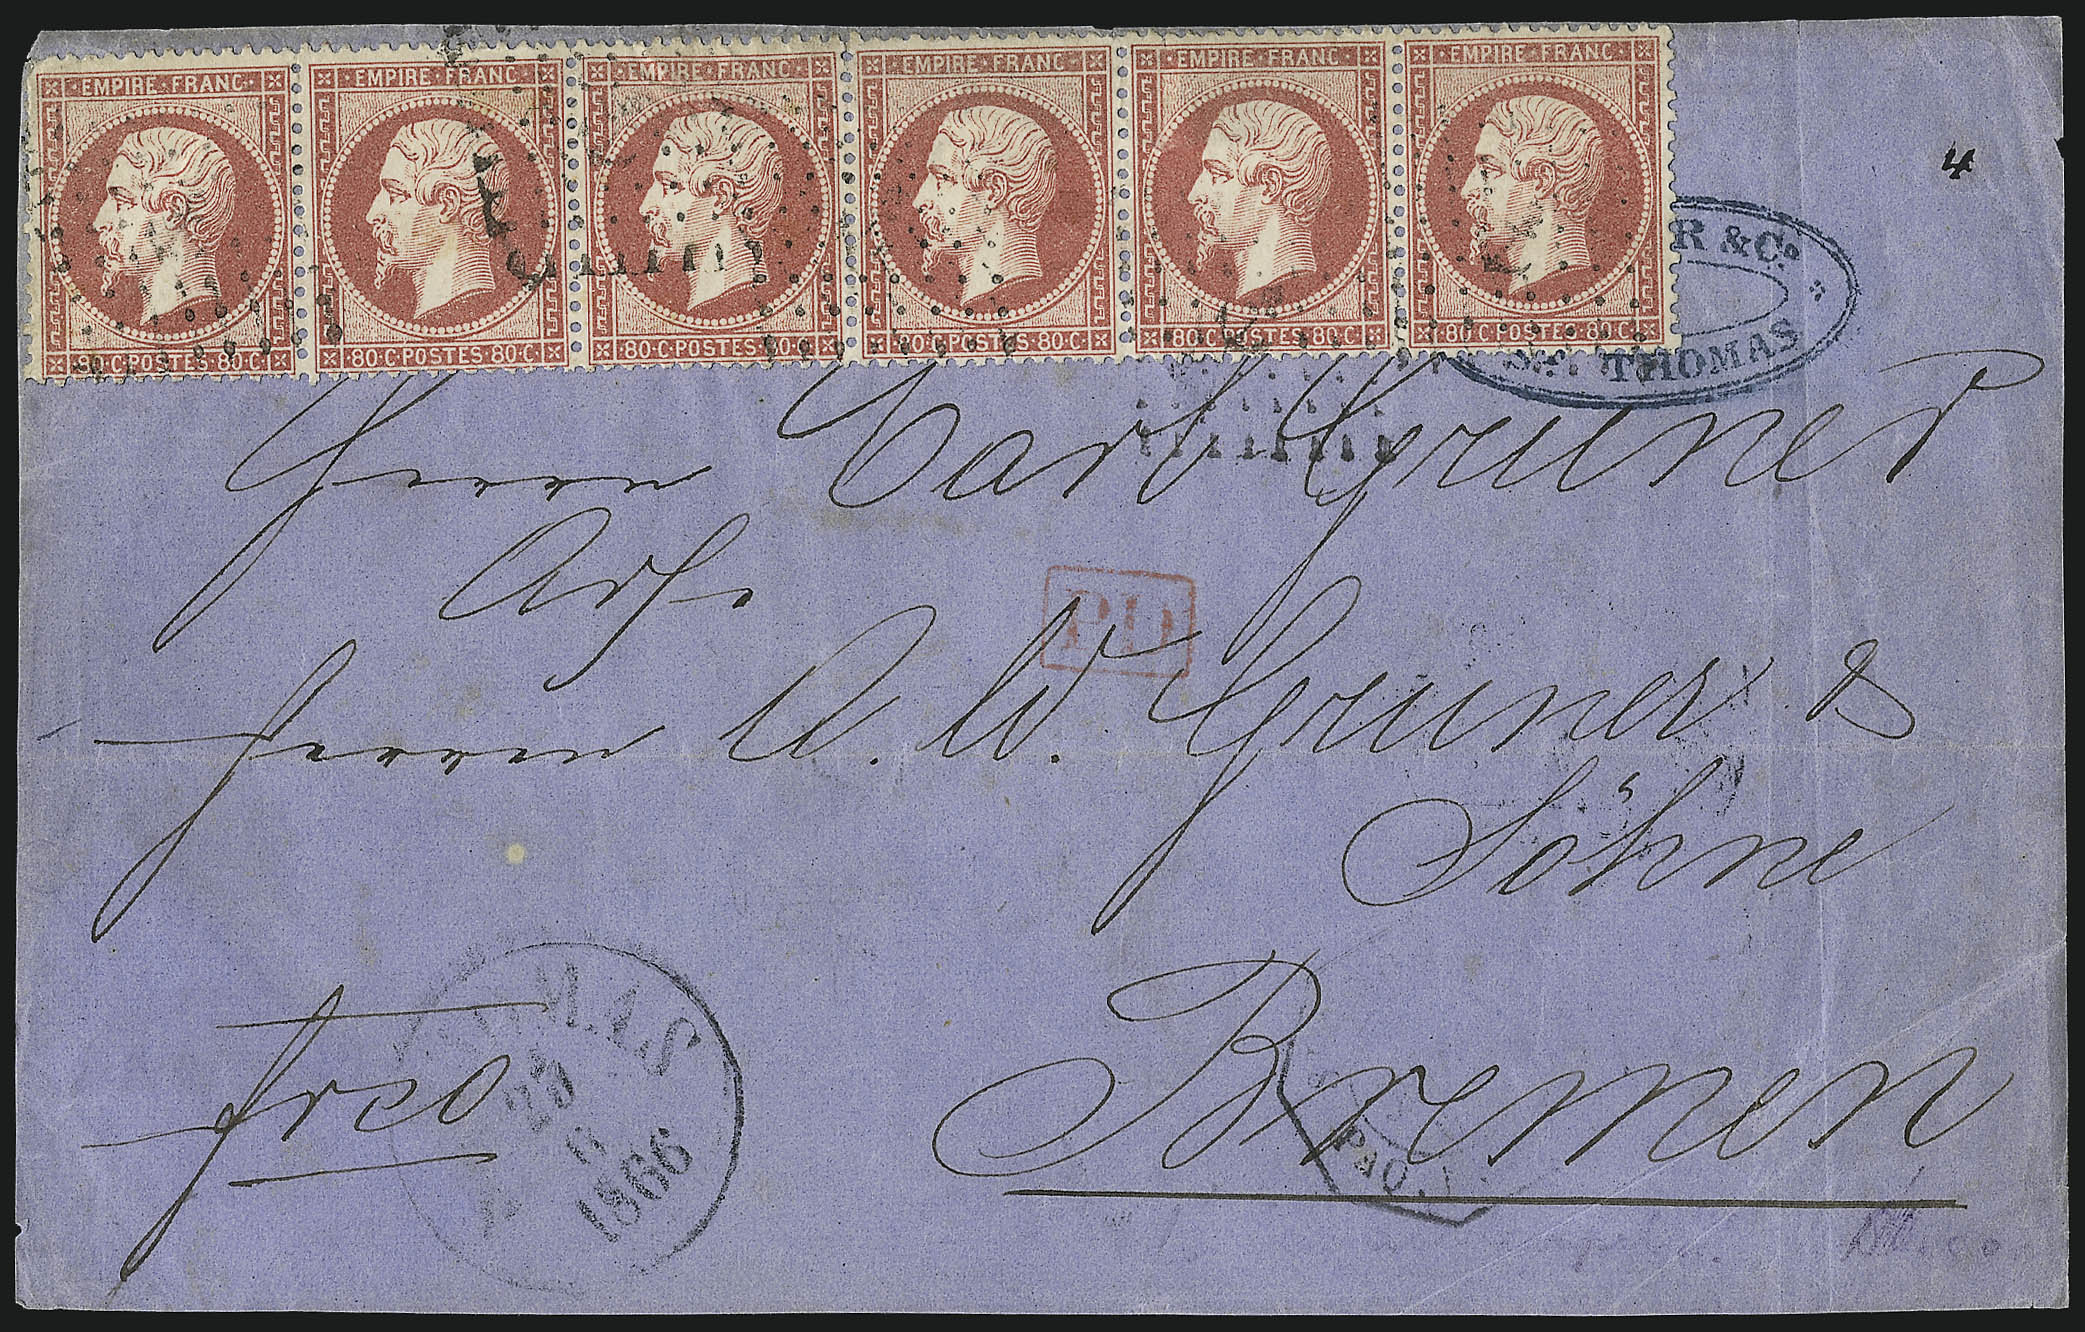 EMPIRE·FRANC· EMPIRE·FRANC· EMPIRE·FRANC· EMPIRE·FRANC· EMPIRE·FRANC· EMPIRE·FRANC·
80·C·POSTES·80·C· 80·C·POSTES·80·C· 80·C·POSTES·80·C· 80·C·POSTES·80·C· 80·C·POSTES·80·C· 80·C·POSTES·80·C·
4
R & Co
ST. THOMAS
Herrn Carl Gruner
Adr.
PD
Herren A. W. Gruner &
Söhne
Bremen
frco
THOMAS
25
6
1866
PAQ.